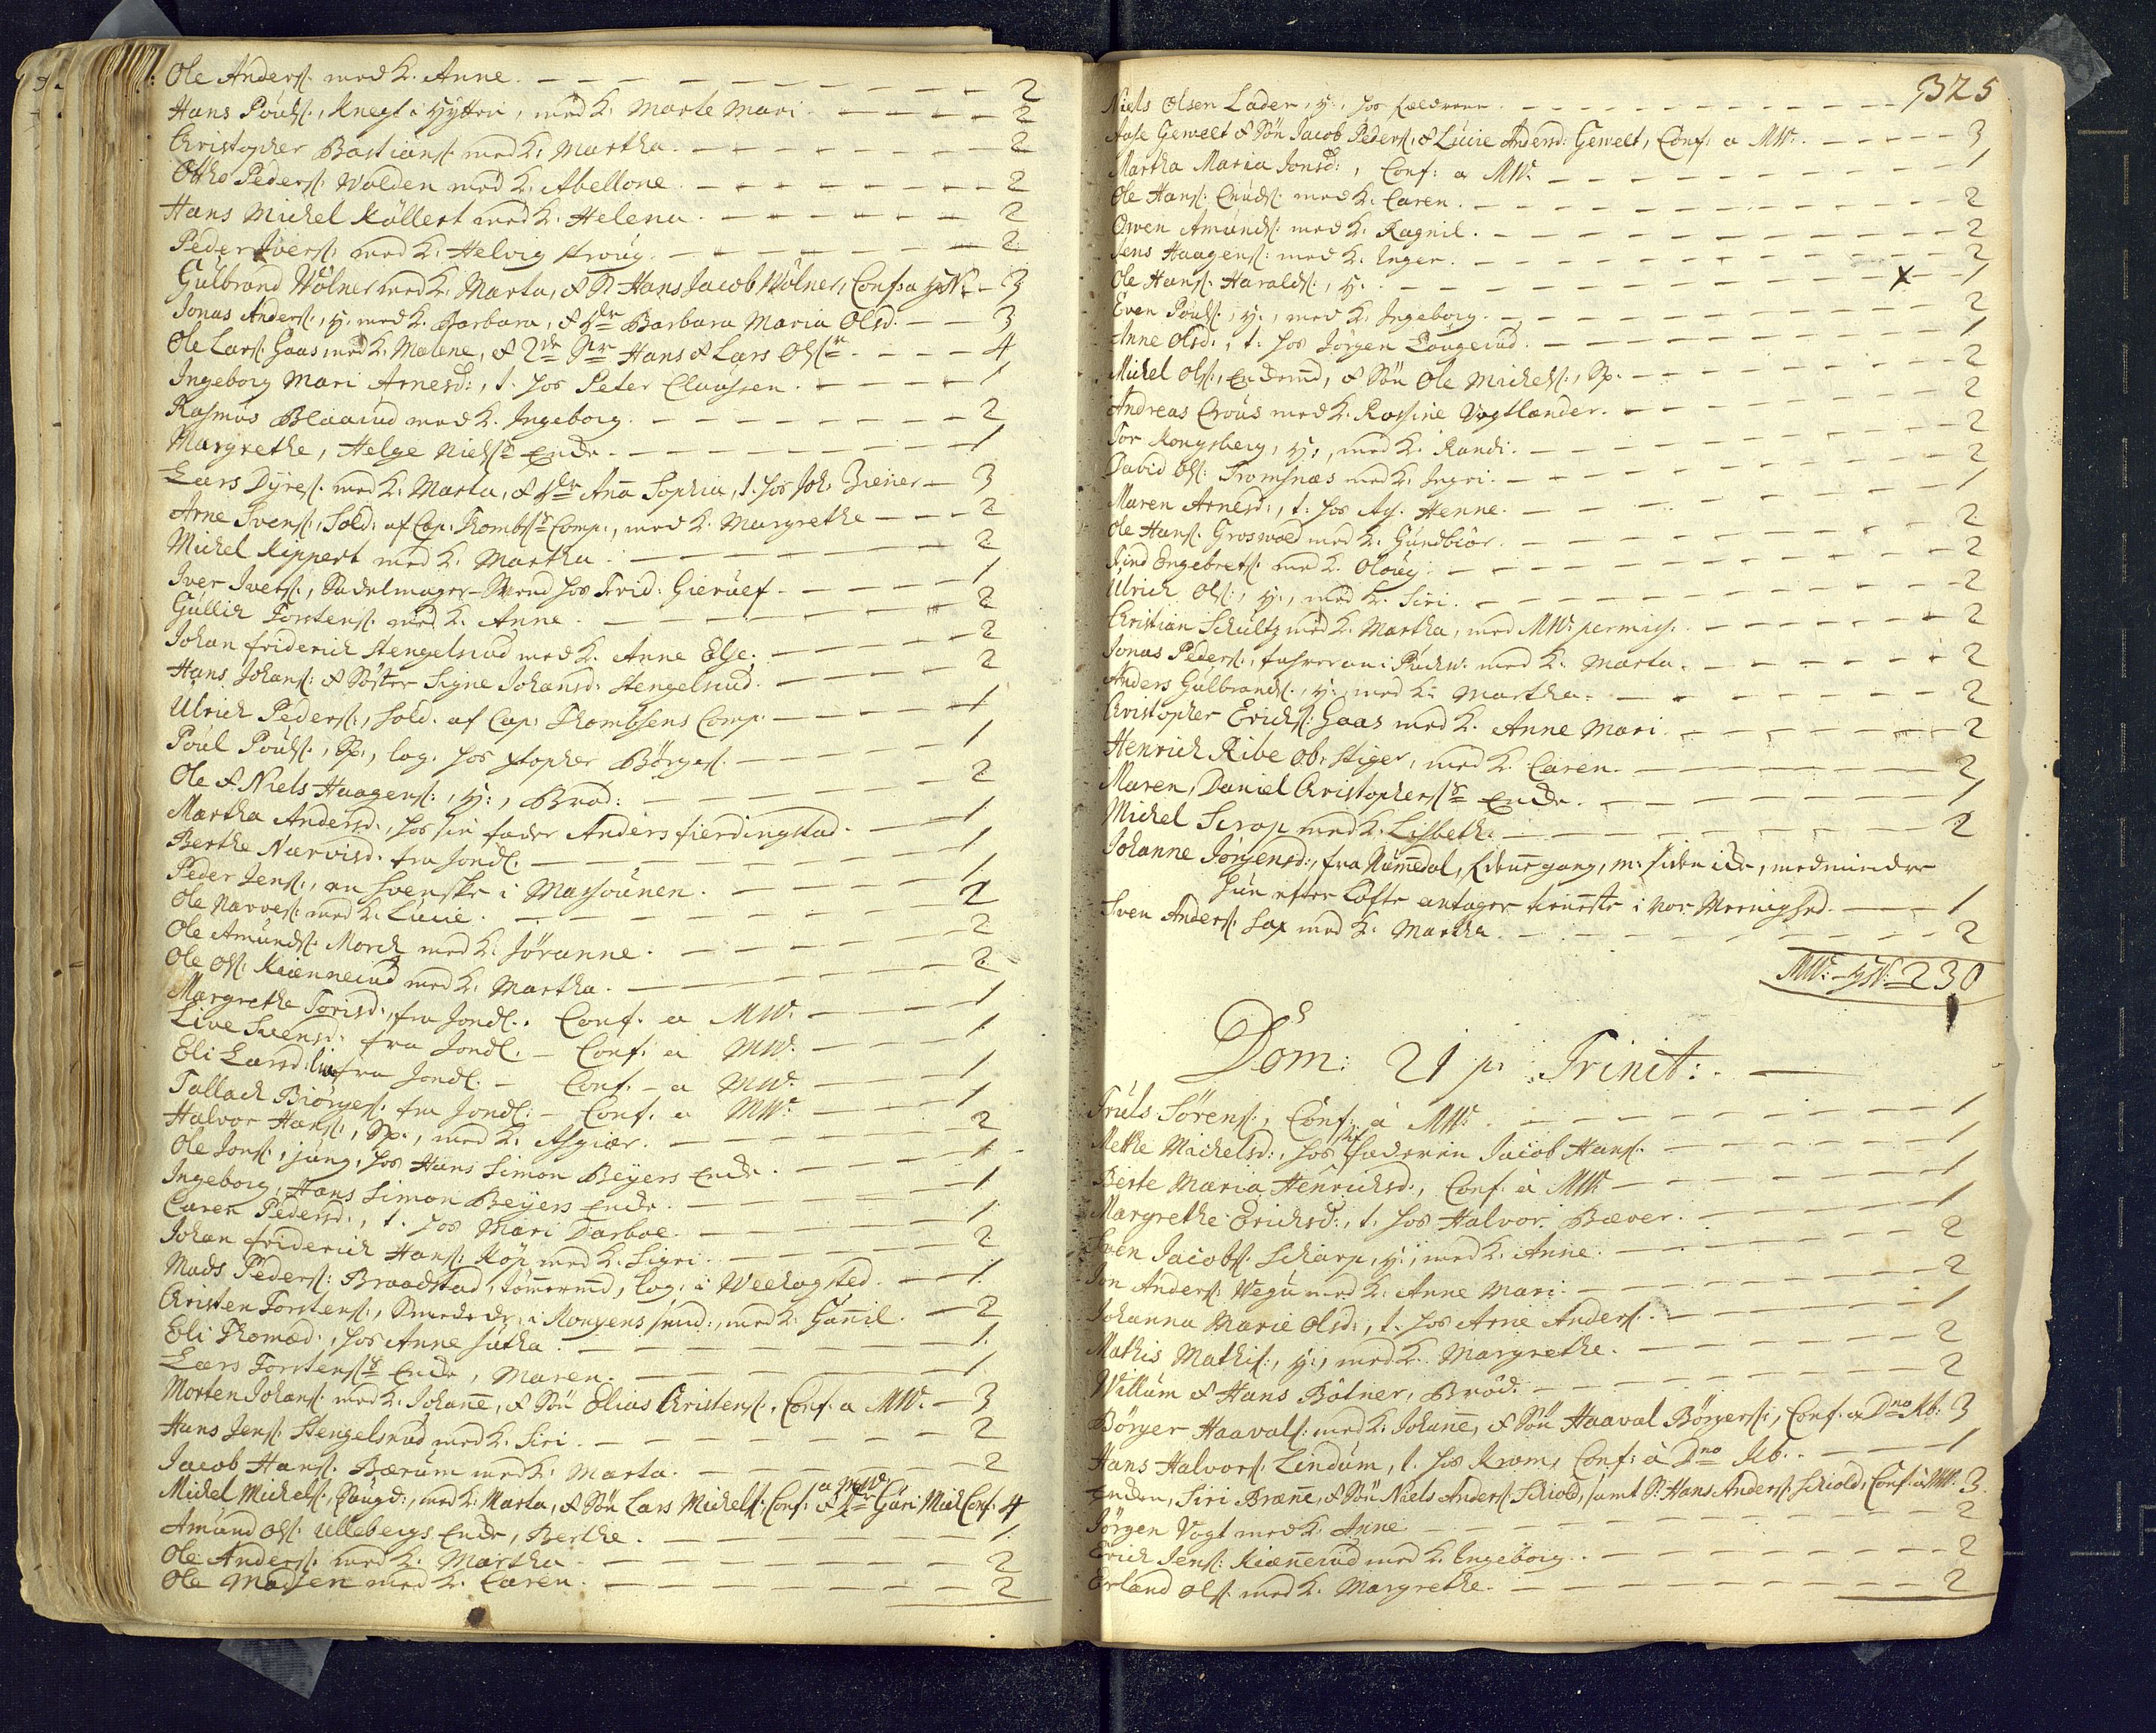 Ole Anders: med K. Anne. — 2
Hans Pouls:, Knegt i Hytten, med K. Marte Mari — 2
Christopher Bastians: med K. Martha. — 2
Otto Peders: Wolden med K. Abellone. — 2
Hans Michel Köllert med K. Helena. — 2
Peder Ivers: med K. Helvig — 2
Gulbrand Wölner med K. Marta, & S: Hans Jacob Wölner, Conf: a — 3
Jonas Anders:, H. med K. Barbara, & Barbara Maria Olsd. — 3
Ole Lars: Gaas med K. Malene, & 2de Hans & Lars Ols: — 4
Ingeborg Mari Arnesd:, t. hos Peter Claussen. — 1
Rasmus Blaarud med K. Ingeborg. — 2
Margrethe, Helge Niels: Encke. — 1
Lars Dyres: med K. Marta, & Ana Sophia, t. hos Joh: Ziener — 3
Arne Svens:, Sold: af Cap: Thombs: Comp:, med K. Margrethe — 2
Michel Kippert med K. Martha. — 2
Iver Ivers:, Sadelmager-Svend hos Frid: Gieruef — 1
Gullich Torstens: med K. Anne. — 2
Johan friderich Stengelsrud med K. Anne Else. — 2
Hans Johans: & Söster Signe Johansd: Stengelsrud. — 2
Ulrich Peders:, Sold. af Cap: Thombsens Comp. — 1
Poul Pouls:, Sp:, log. hos Xtopher Börges: — 1
Ole & Niels Haagens:, H:, Bröd: — 2
Martha Andersd:, hos sin fader Anders fierdingstad. — 1
Berthe Narvisd. fra Jondl. — 1
Peder Jens:, en Svenske i Massounen. — 1
Ole Narves: med K. Lucie. — 2
Ole Amunds: Morch med K. Jöranne. — 2
Ole Ols: Kiennerud med K. Martha. — 2
Margrethe Torisd:, fra Jondl. Conf. a MW. — 1
Live Svensd: fra Jondl. — Conf. a MW. — 1
Eli Larsd: fra Jondl. — Conf. a MW. — 1
Tallach Biörges: fra Jondl: — Conf. a MW: — 1
Halvor Hans:, Sp., med K. Asgiær. — 2
Ole Jons:, jung, hos Hans Simon Beyers Encke. — 1
Ingeborg, Hans Simon Beyers Encke. — 1
Caren Pedersd:, t. hos Mari Darboe. — 1
Johan friderich Hans: Köp med K. Sigri. — 2
Mads Peders: Braadstad, tömermd, log: i Weelogsted. — 1
Christen Torstens:, Smededr: i Kongens smid:, med K. Gunil. — 2
Eli Thomæd:, hos Anne Jutha. — 1
Lars Torstens: Encke, Maren. — 1
Morten Johans: med K. Johane, & Sön Elias Christens:, Conf. a MW. — 3
Hans Jens: Stengelsrud med K. Siri. — 2
Jacob Hans: Bærum med K. Marta. — 2
Michel Michels:, Saugd:, med K. Marta, & Sön Lars Michels: Conf: a MW & Guri: Mich Conf. 4
Amund Ols: Ullebergs Encke, Berthe. — 1
Ole Anders: med K. Martha. — 2
Ole Madsen med K. Caren. — 2
325
Niels Olsen Lader, H:, hos
Aase Gewelt & Sön Jacob Peders: & Lucie Andersd: Gewelt, Conf: a MW. — 3
Martha Maria Jonsd:, Conf: a MW. — 1
Ole Hans: Cnuds: med K. Caren. — 2
Owen Amunds: med K. Ragnil. — 2
Jens Haagens: med K. Inger. — 2
Ole Hans: Haralds:, H. — x 1
Even Pouls:, H., med K. Ingeborg. — 2
Anne Olsd:, t. hos Jörgen Laugerud. — 1
Michel Ols:, & Sön Ole Michels:, Sp. — 2
Andreas Crous med K. Rossine Vogtlænder. — 2
Tor Kongsberg, H:, med K. Randi. — 2
David Ols: Tromsnæs med K. Ingri. — 2
Maren Arnesd:, t. hos Ag. Henne. — 1
Ole Hans: Groswold med K. Gundbiör. — 2
Knud Engebrets: med K. Oloug. — 2
Ulrich Ols:, H., med K. Siri. — 2
Christian Schultz med K. Martha, med MW. permiss. — 2
Jonas Peders:, i Puckw. med K. Marta. — 2
Anders Gulbrands:, H:, med K: Martha. — 2
Christopher Erichs: Gaas med K. Anne Mari. — 2
Henrich Ribe Ob: Stiger, med K. Caren. — 2
Maren, Daniel Christophers: Encke. — 1
Michel Scrop med K. Lisbeth. — 2
Johanne Jörgensd:, fra Numedal, medmindre
hun efter Löfte antager tieneste i vor Menighed. — 1
Sven Anders: Sax med K. Martha. — 2
MW: 230
Dom: 21 p: Trinit:. —
Truls Sörens:, Conf: a MW. — 1
Methe Michelsd:, hos Stif faderen Jacob Hans: — 1
Berte Maria Henrichsd:, Conf: a MW — 1
Margrethe Erichsd:, t. hos Halvor Bæver. — 1
Sven Jacobs: Scharp, H:, med K. Anne. — 2
Jon Anders: Wegu med K. Anne Mari. — 2
Johanna Marie Olsd:, t. hos Arne Anders: — 1
Mathis Mathis:, H:, med K. Margrethe. — 2
Willum & Hans Bötner, Bröd. — 2
Börger Haavals: med K. Johane, & Sön Haaval Börgers:, Conf. a Dno Kb: 3
Hans Halvors: Lindum, t. hos Krom, Conf: a Dno Kb. — 1
Encken, Siri Bræne, & Sön Niels Anders: Schiold, samt S: Hans Anders: Schiold, Conf: a MW. 3
Jörgen Vogt med K. Anne — 2
Erich Jens: Kiænerud med K. Ingeborg. — 2
Erland Ols: med K. Margrethe. — 2